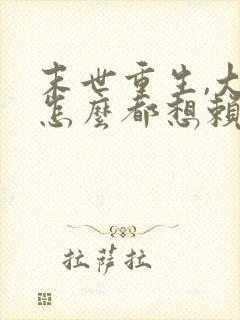 末世重生,大
怎麼都想賴
拉薩拉